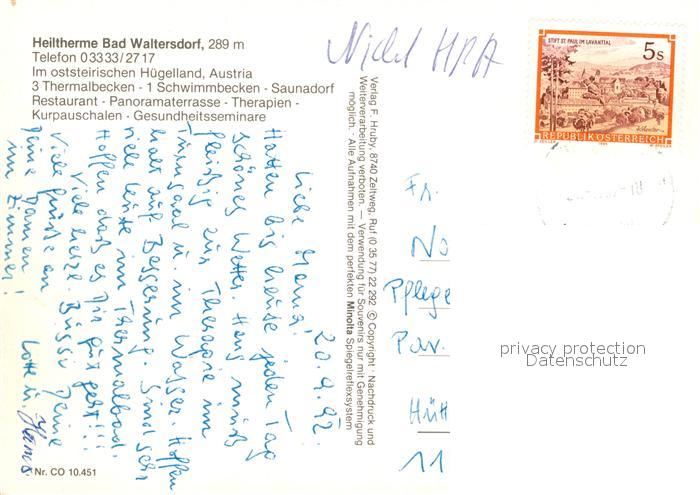 Heiltherme Bad Waltersdorf, 289 m
Telefon 03333/2717
Im oststeirischen Hügelland, Austria
3 Thermalbecken - 1 Schwimmbecken - Saunadorf
Restaurant - Panoramaterrasse - Therapien -
Kurpauschalen - Gesundheitsseminare
STIFT ST. PAUL IM LAVANTTAL
5 S
REPUBLIK ÖSTERREICH
Verlag F. Hruby, 8740 Zeltweg, Ruf (0 35 77) 22 292 © Copyright · Nachdruck und
Weiterverarbeitung verboten. — Verwendung für Souvenirs nur mit Genehmigung
möglich. · Alle Aufnahmen mit dem perfekten Minolta Spiegelreflexsystem
20.4.92.
Liebe Mama!
Hatten bis heute jeden Tag
schönes Wetter. Hans muß
fleißig zur Therapie im
Turnsaal u. im Wasser. Hoffen
halt auf Besserung. Sind sehr
viele Leute im Thermalbad.
Hoffen daß es Dir gut geht!!!
Viele herzl. Bussi Deine
Viele Grüße an
Deine Damen
im Zimmer!
Lotte u. Hans
Fr.
No
Pflege
Pav.
Hütt
11
privacy protection
Datenschutz
Nr. CO 10.451